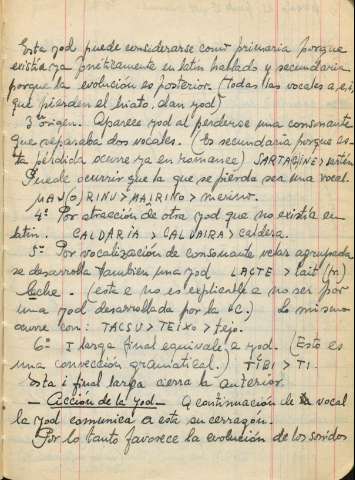 Este yod puede considerarse como primaria porque
existía ya fonéticamente en latín hablado y secundaria
porque la evolución es posterior. (Todas las vocales a, e, i,
que pierden el hiato, dan yod)
3er origen. Aparece yod al perderse una consonante
que separaba dos vocales. (Es secundaria porque es-
ta pérdida ocurre ya en romance) SARTAGINE > sartén
Puede ocurrir que la que se pierda sea una vocal.
MAJ(O)RINU > MAIRINO > merino.
4º Por atracción de otra yod que no existía en
latín. CALDARIA > CALDAIRA > caldera.
5º Por vocalización de consonante velar agrupada
se desarrolla también una yod LACTE > lait
leche. (esta e no es explicable a no ser por
una yod desarrollada por la C.) Lo mismo
ocurre con: TACSU > TEIXO > tejo.
6º I larga final equivale a yod. (Esto es
una convección gramatical.) TIBI > TI.
Esta i final larga cierra la anterior.
— Acción de la yod — A continuación de la vocal
la yod comunica a esta su cerrazón.
Por lo tanto favorece la evolución de los sonidos